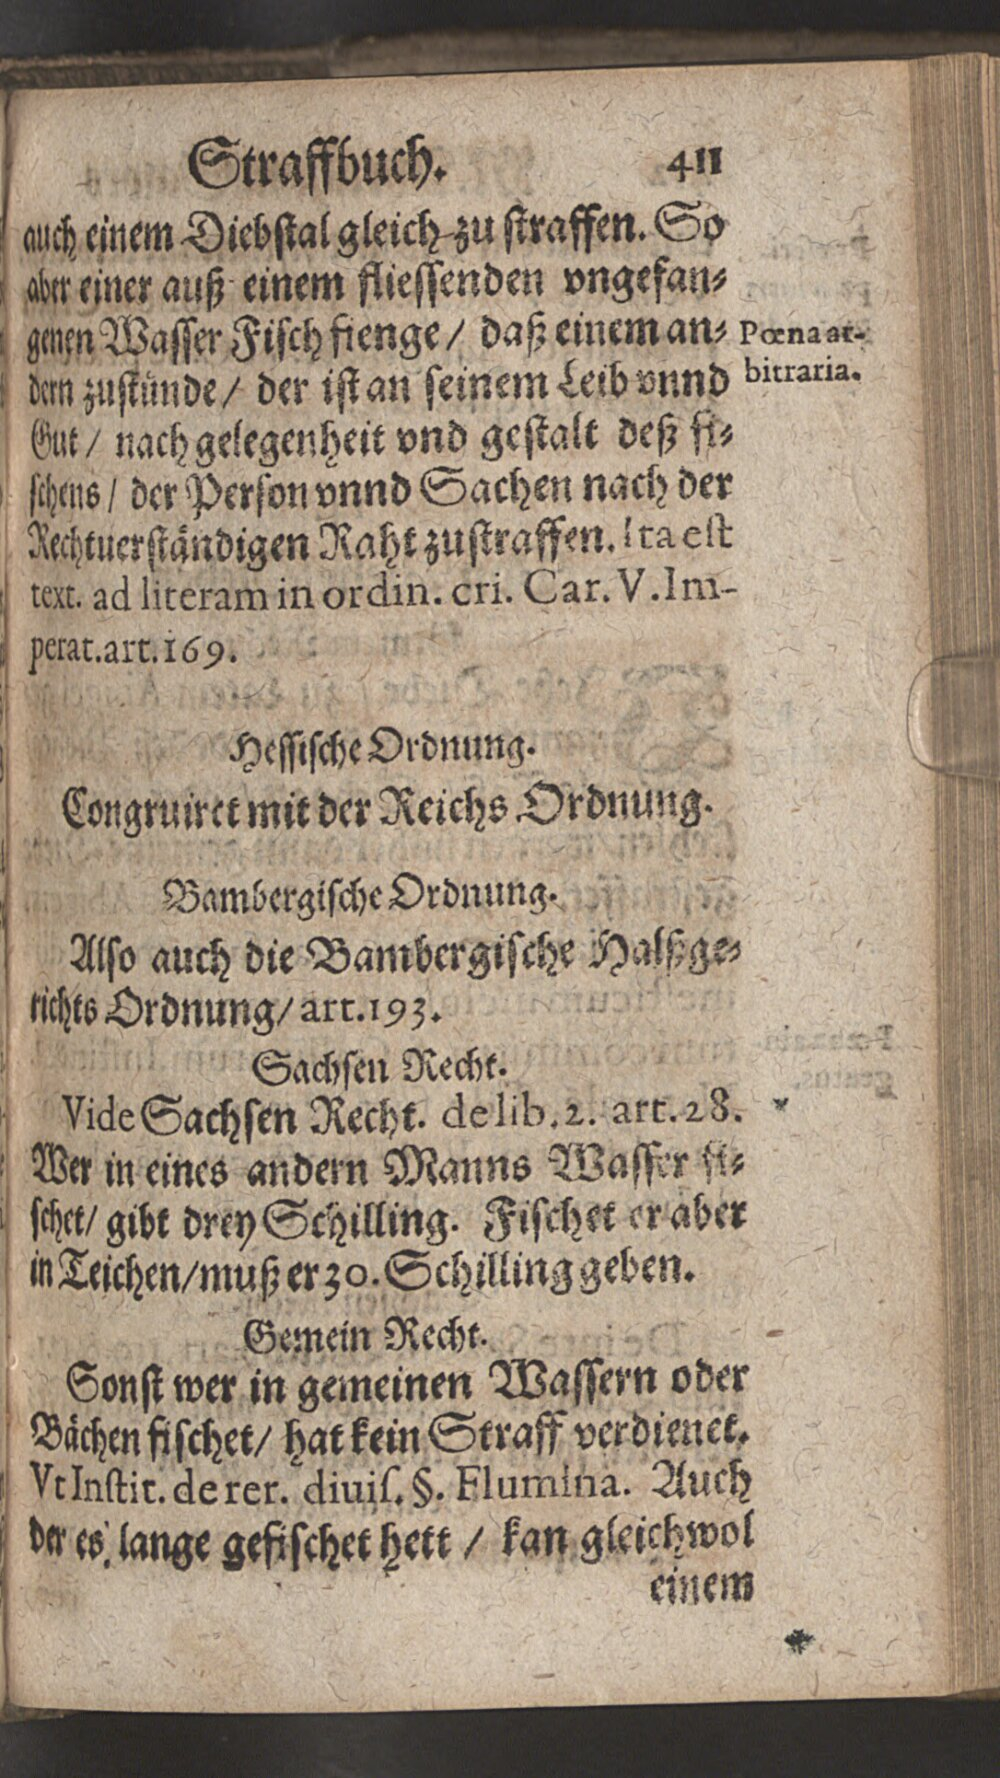 Straffbuch. 411
auch einem Diebstal gleich zu straffen. So
aber einer auß einem fliessenden vngefan-
genen Wasser Fisch fienge / daß einem an-
dern zustünde / der ist an seinem Leib vnnd
Gut / nach gelegenheit vnd gestalt deß fi-
schens / der Person vnnd Sachen nach der
Rechtuerständigen Raht zustraffen. Ita est
text. ad literam in ordin. cri. Car. V. Im-
perat. art. 169.
Pœna ar-
bitraria.
Hessische Ordnung.
Congruiret mit der Reichs Ordnung.
Bambergische Ordnung.
Also auch die Bambergische Halßge-
richts Ordnung / art. 193.
Sachsen Recht.
Vide Sachsen Recht. de lib. 2. art. 28.
Wer in eines andern Manns Wasser fi-
schet / gibt drey Schilling. Fischet er aber
in Teichen / muß er 30. Schilling geben.
Gemein Recht.
Sonst wer in gemeinen Wassern oder
Bächen fischet / hat kein Straff verdienet.
Vt Instit. de rer. diuis. §. Flumina. Auch
der es lange gefischet hett / kan gleichwol
einem